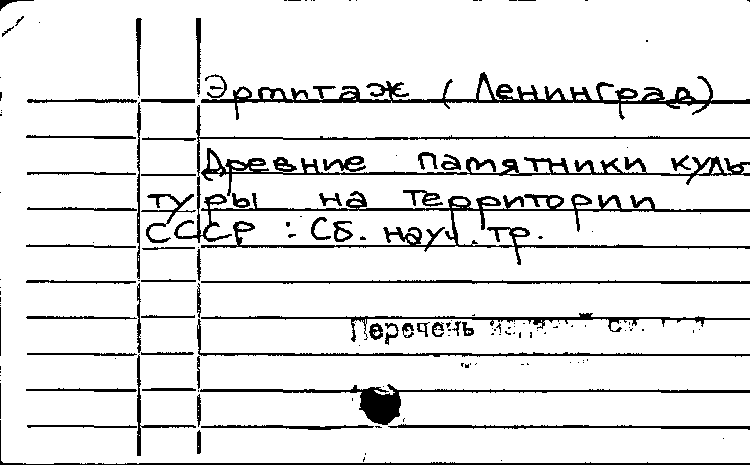 Эрмитаж (Ленинград)
Древние памятники куль-
туры на территории
СССР : Сб. науч. тр.
Перечень изданий см.